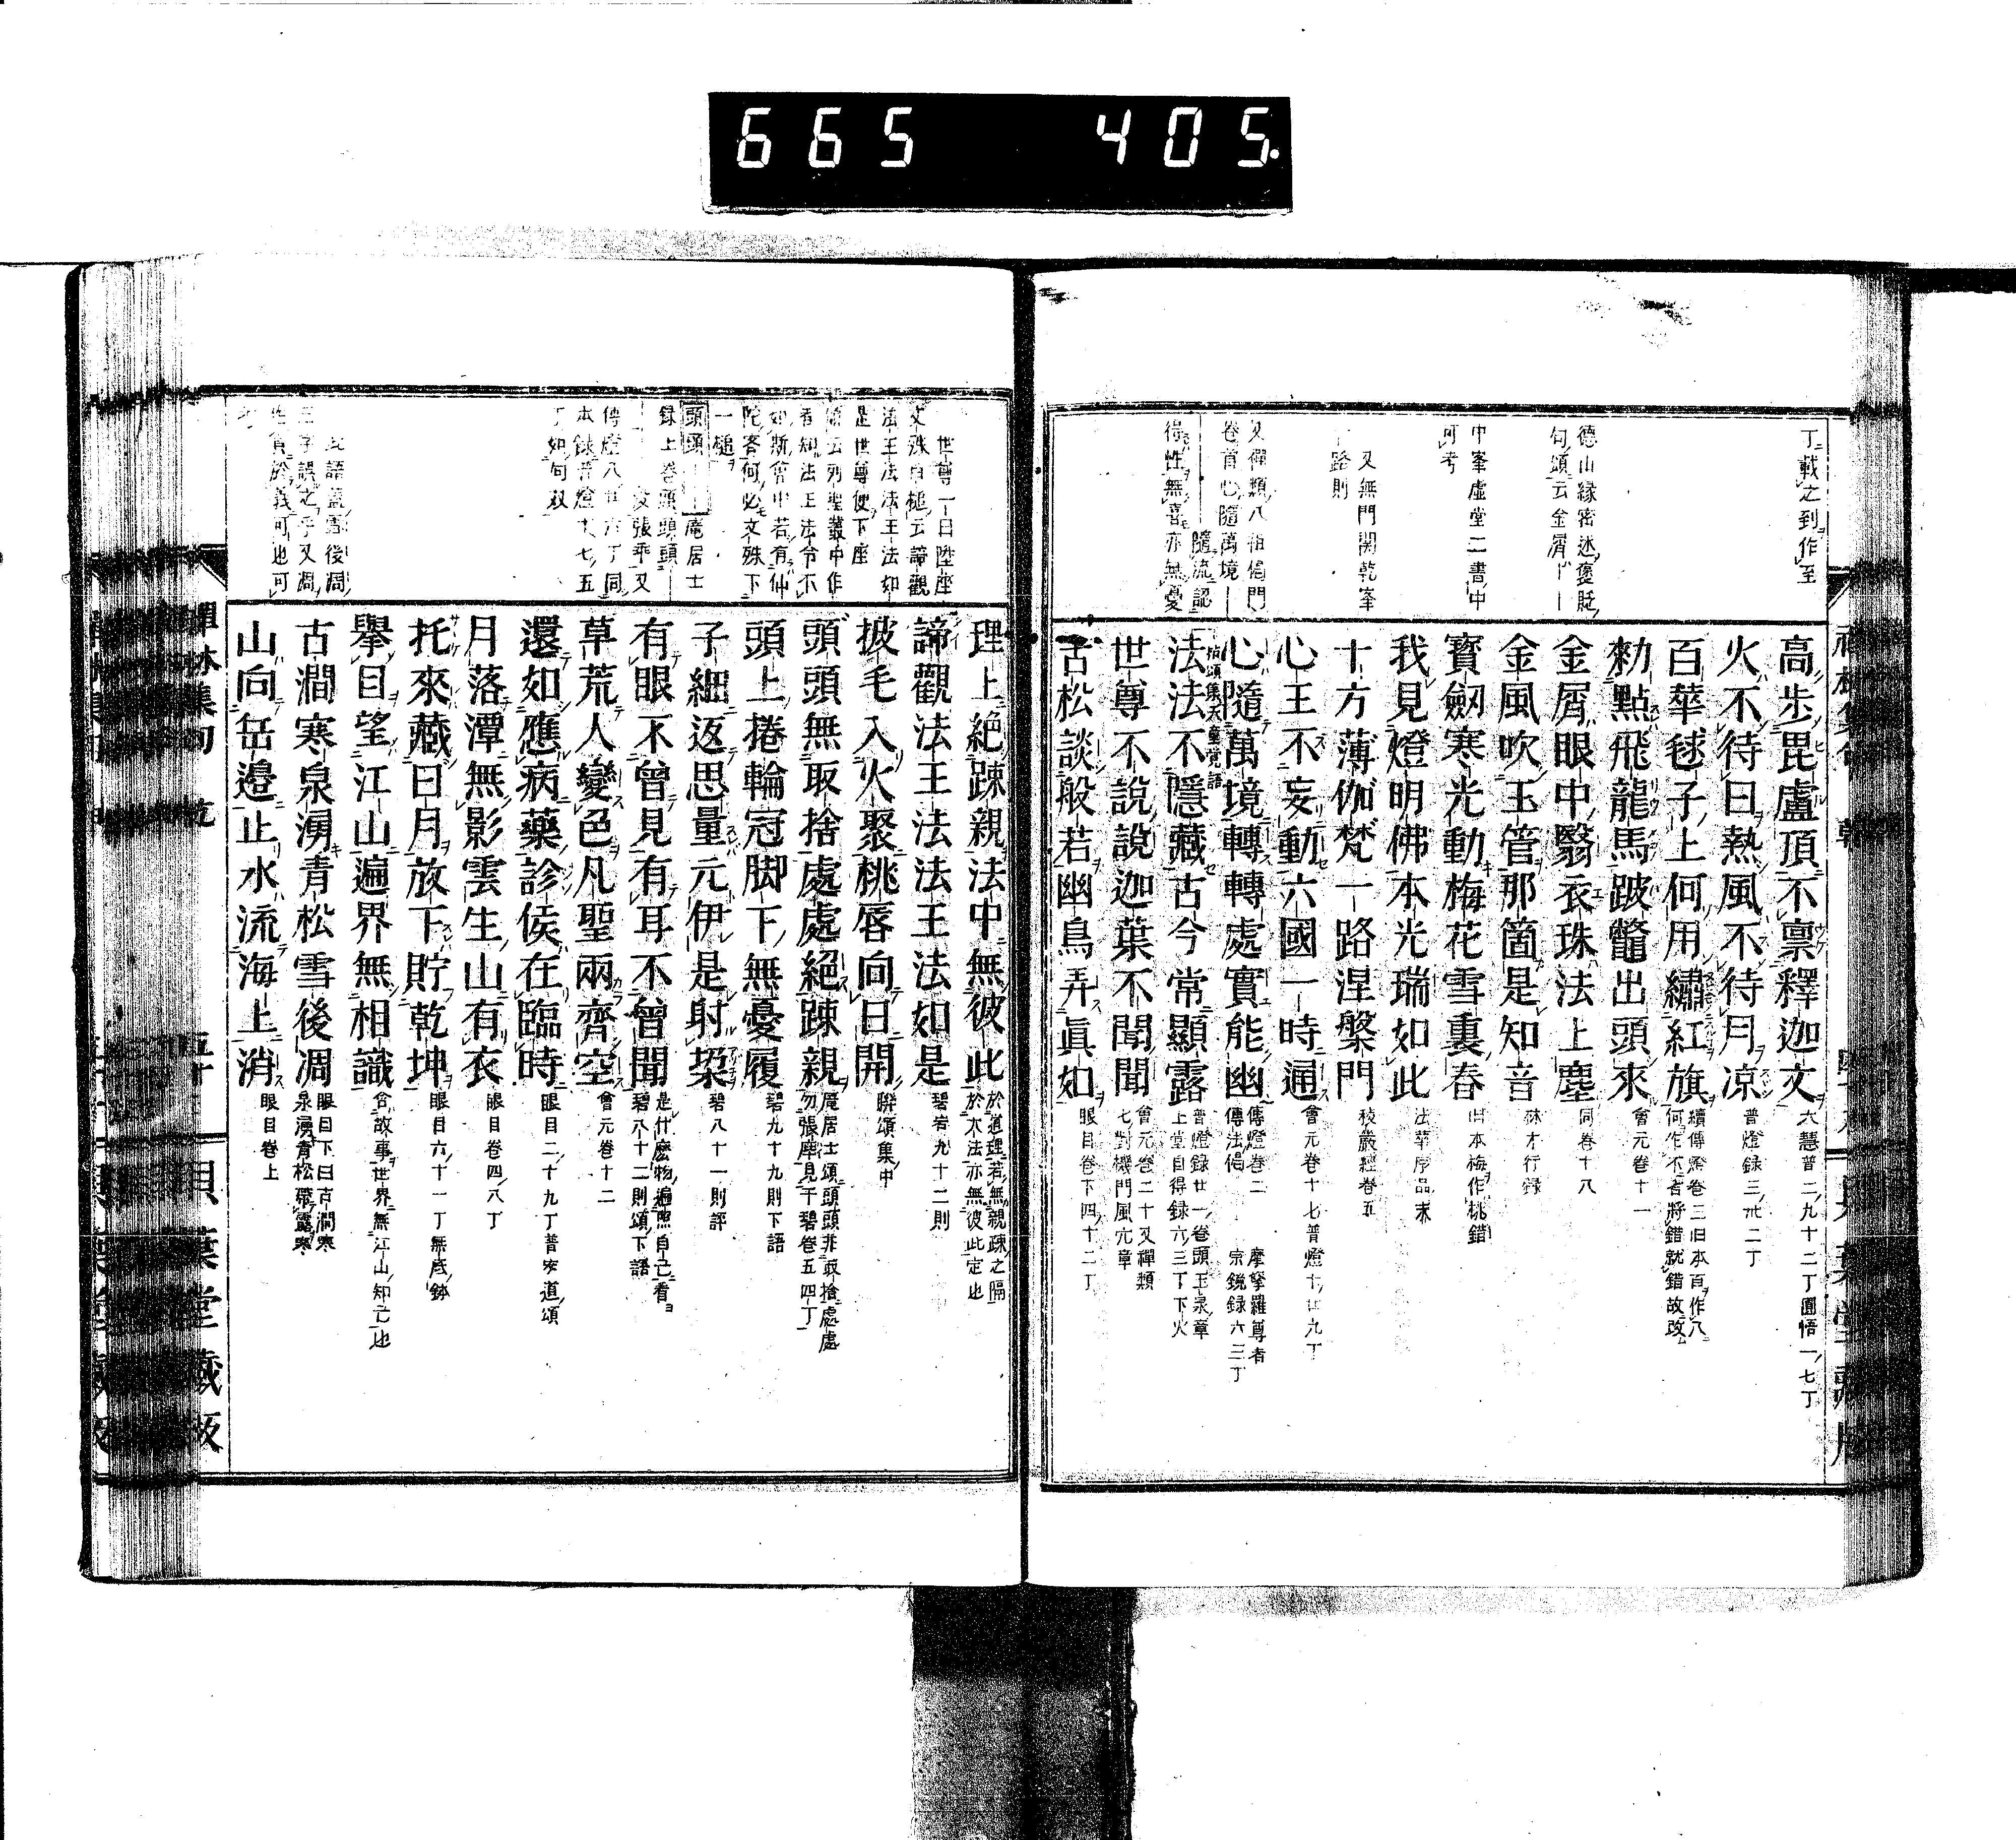 665 405.
丁載之到作至
德山緣密述褒貶
句頌云金屑
中峯虛堂二書中
可考
又無門關乾峯
一路則
又禪類八祖偈門
卷首心隨萬境
隨流認
得性無喜亦無憂
高步毘盧頂不禀釋迦文
大慧普二九十二丁圜悟一七丁
火不待日熱風不待月凉
普燈錄三卅二丁
百華毬子上何用繡紅旗
續傳燈卷三旧本百作八
何作不者將錯就錯故改
勑點飛龍馬跛鼈出頭來
會元卷十一
金屑眼中翳衣珠法上塵
同卷十八
金風吹玉管那箇是知音
林才行錄
寶劔寒光動梅花雪裏春
旧本梅作桃錯
我見燈明佛本光瑞如此
法華序品末
十方薄伽梵一路涅槃門
稜嚴經卷五
心王不妄動六國一時通
會元卷十七普燈十廿九丁
心隨萬境轉轉處實能幽
傳燈卷二 摩拏羅尊者
傳法偈 宗鏡録六三丁
拈頌集天童覺語
法法不隱藏古今常顯露
普燈録廿一卷頭玉泉章
上堂自得録六三丁下火
世尊不說說迦葉不聞聞
會元卷二十又禪類
七對機門風穴章
古松談般若幽鳥弄眞如
眼目卷下四十二丁
世尊一日陞座
文殊白槌云諦觀
法王法法王法如
是世尊便下座
頌云列聖叢中作
者知法王法令不
如斯會中若有仙
陀客何必文殊下
一槌
頭頭 庵居士
録上卷頭頭
張乖又
傳燈八廿六丁同
本録普燈十七五
丁如句双
此語蓋雪後凋
三字誤之乎又凋
作負於義可也可
考
理上絕踈親法中無彼此
於道理若無親疎之隔
於本法亦無彼此定也
諦觀法王法法王法如是
碧岩九十二則
披毛入火聚桃唇向日開
聯頌集中
頭頭無取捨處處絕踈親
龐居士頌頭頭非取捨處處
勿張乖見于碧卷五四丁
頭上捲輪冠脚下無憂履
碧九十九則下語
子細返思量元伊是射垜
碧八十一則評
有眼不曾見有耳不曾聞
是什麼物遍照自己看
碧八十二則頌下語
草荒人變色凡聖兩齊空
會元卷十二
還如應病藥診侯在臨時
眼目二十九丁普安道頌
月落潭無影雲生山有衣
眼目卷四八丁
托來藏日月放下貯乾坤
眼目六十一丁無底鉢
擧目望江山遍界無相識
貪故事世界無江山知亡也
古澗寒泉湧青松雪後凋
眼目下曰古澗寒
泉湧青松帶露寒
山向岳邉止水流海上消
眼目卷上
禪林集句 乾
五十
貝葉堂藏版